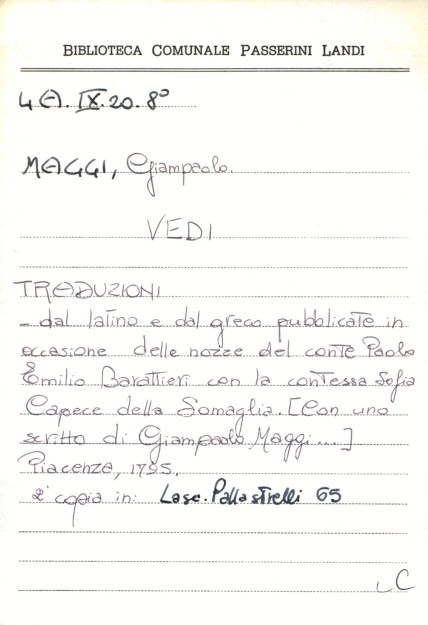 BIBLIOTECA COMUNALE PASSERINI LANDI
4A. IX. 20. 8°
MAGGI, Giampaolo.
VEDI
TRADUZIONI
- dal latino e dal greco pubblicate in
occasione delle nozze del conte Paolo
Emilio Barattieri con la contessa Sofia
Capece della Somaglia. [Con uno
scritto di Giampaolo Maggi...]
Piacenza, 1795.
2ª copia in: Lasc. Pallastrelli 65
LC